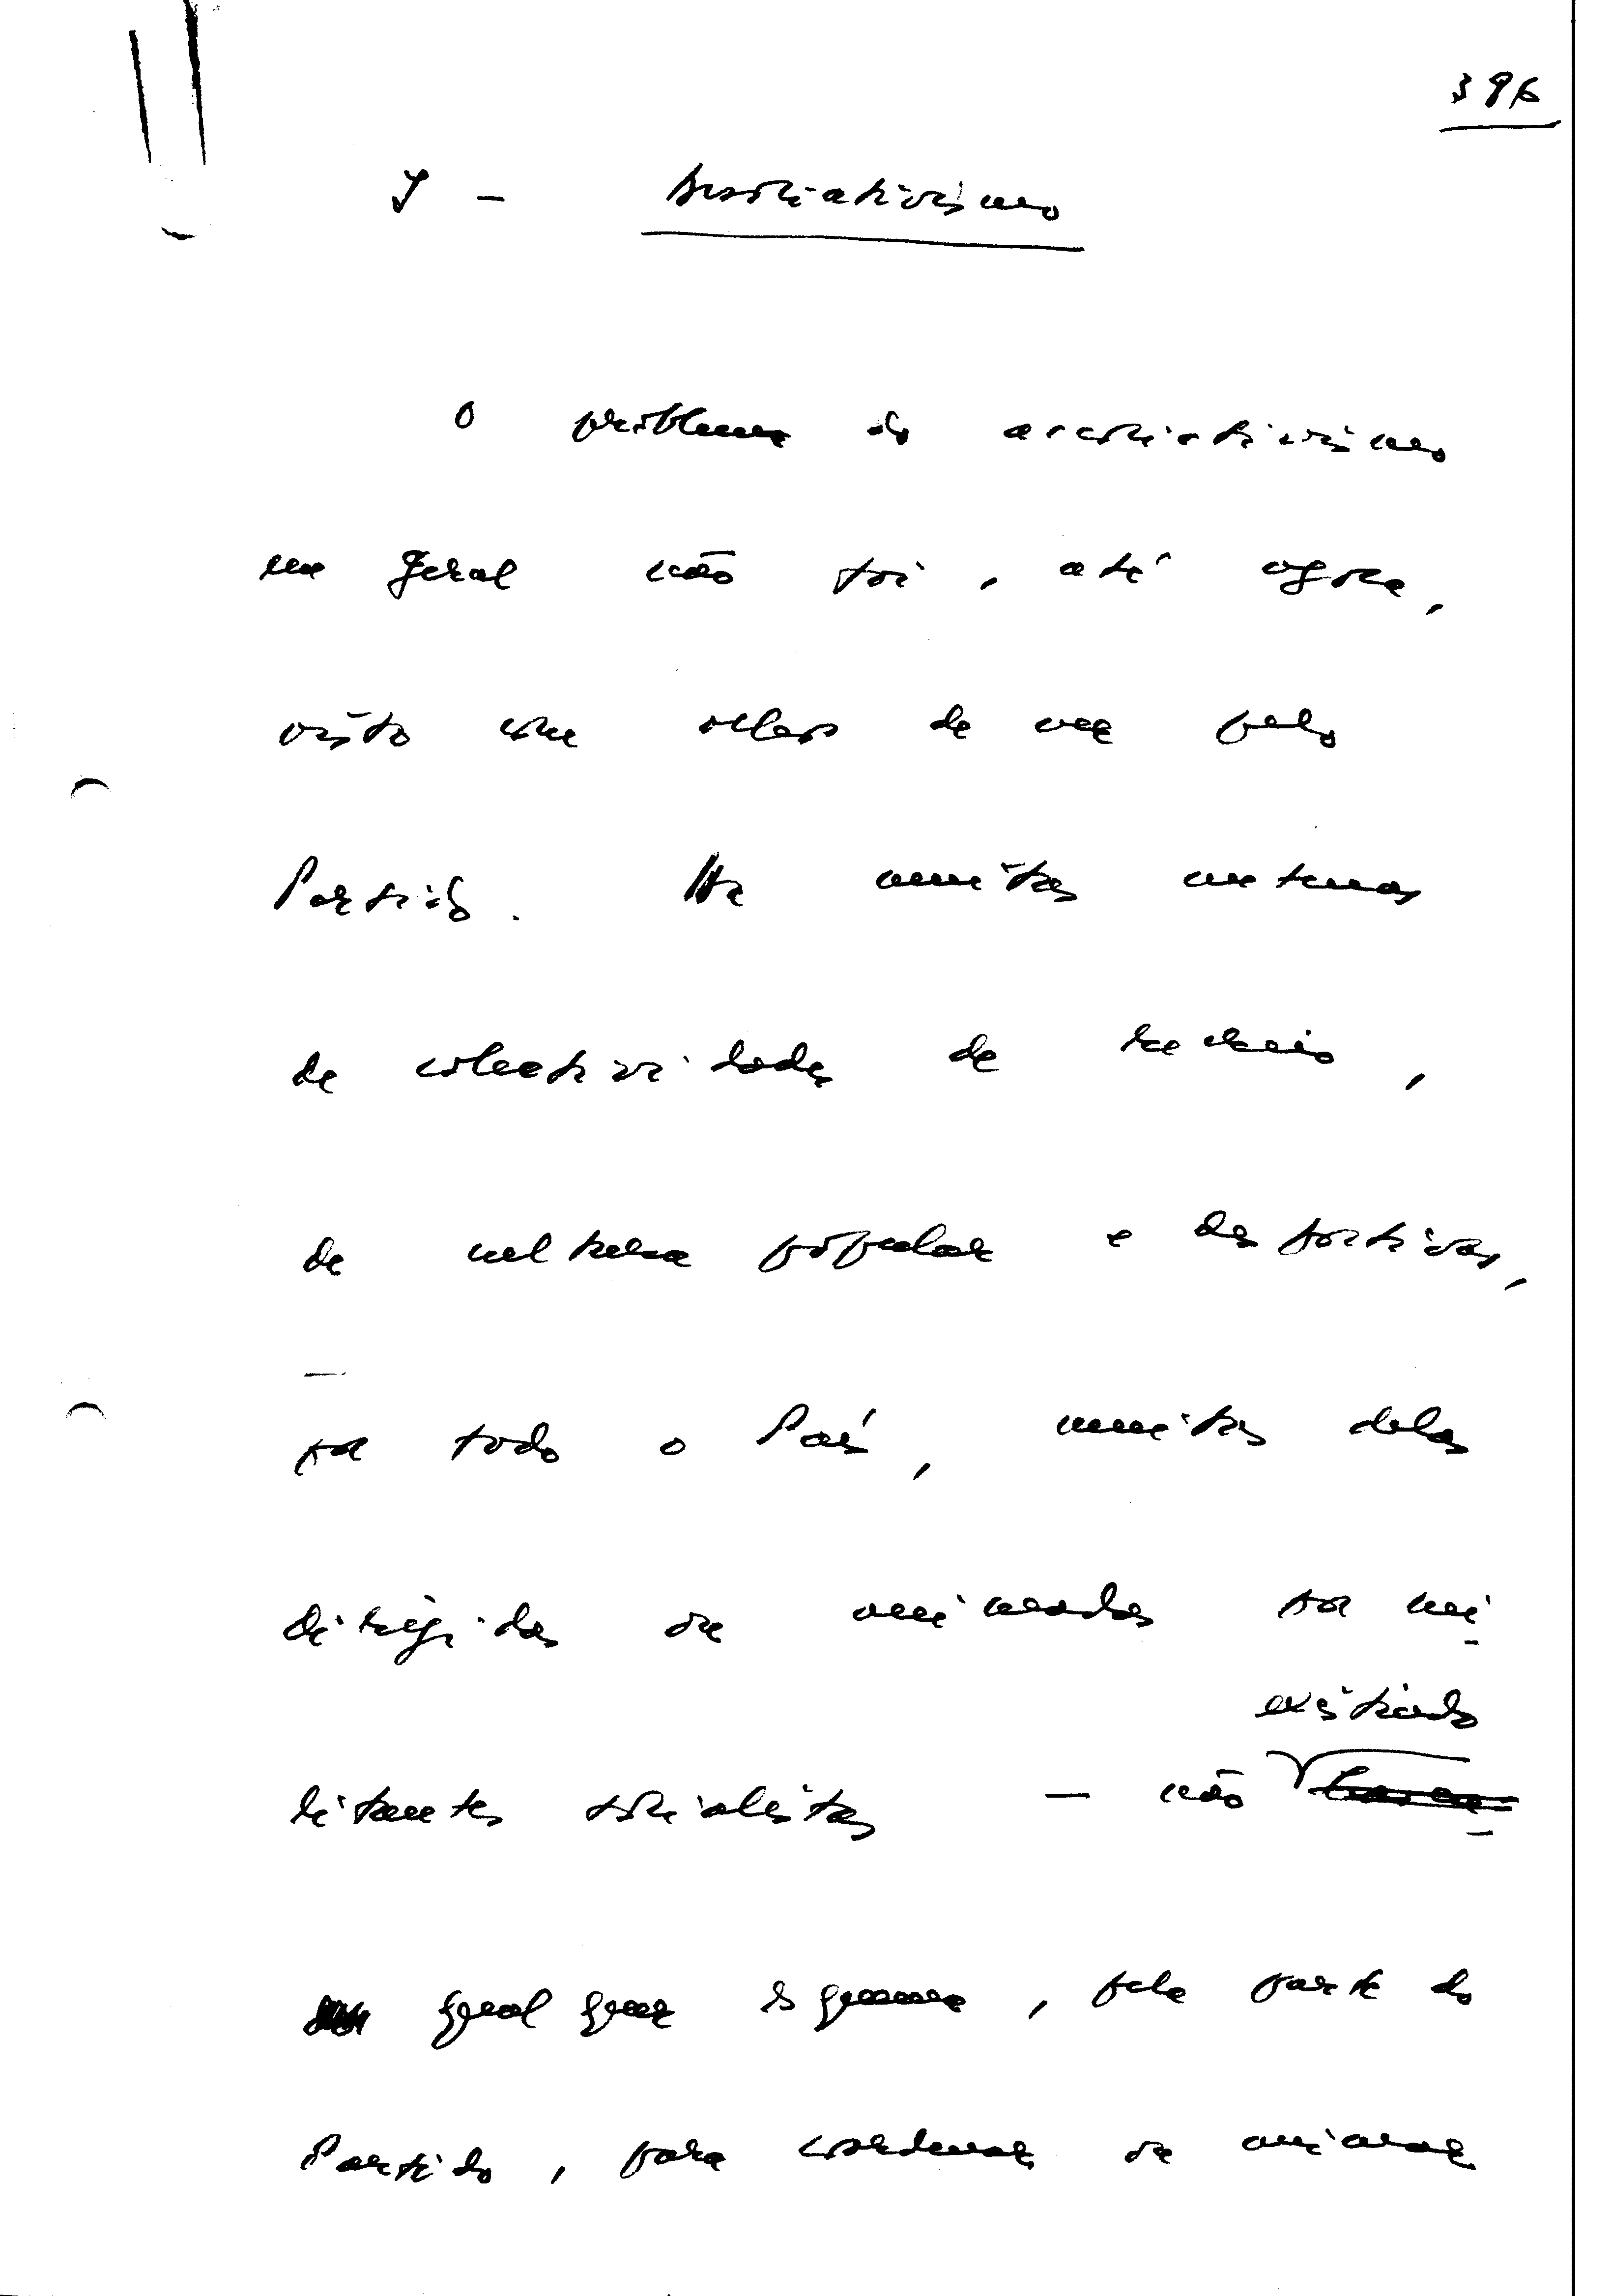 396
J - Associativismo
O problema do associativismo
em geral não foi, até agora,
visto com olhos de ver pelo
Partido. Há muitas centenas
de colectividades de recreio,
de cultura popular e desportivas,
por todo o País, muitas delas
dirigidas ou animadas por mi-
existindo
litantes socialistas - não
qualquer esquema, pela parte do
Partido, para coordenar ou animar